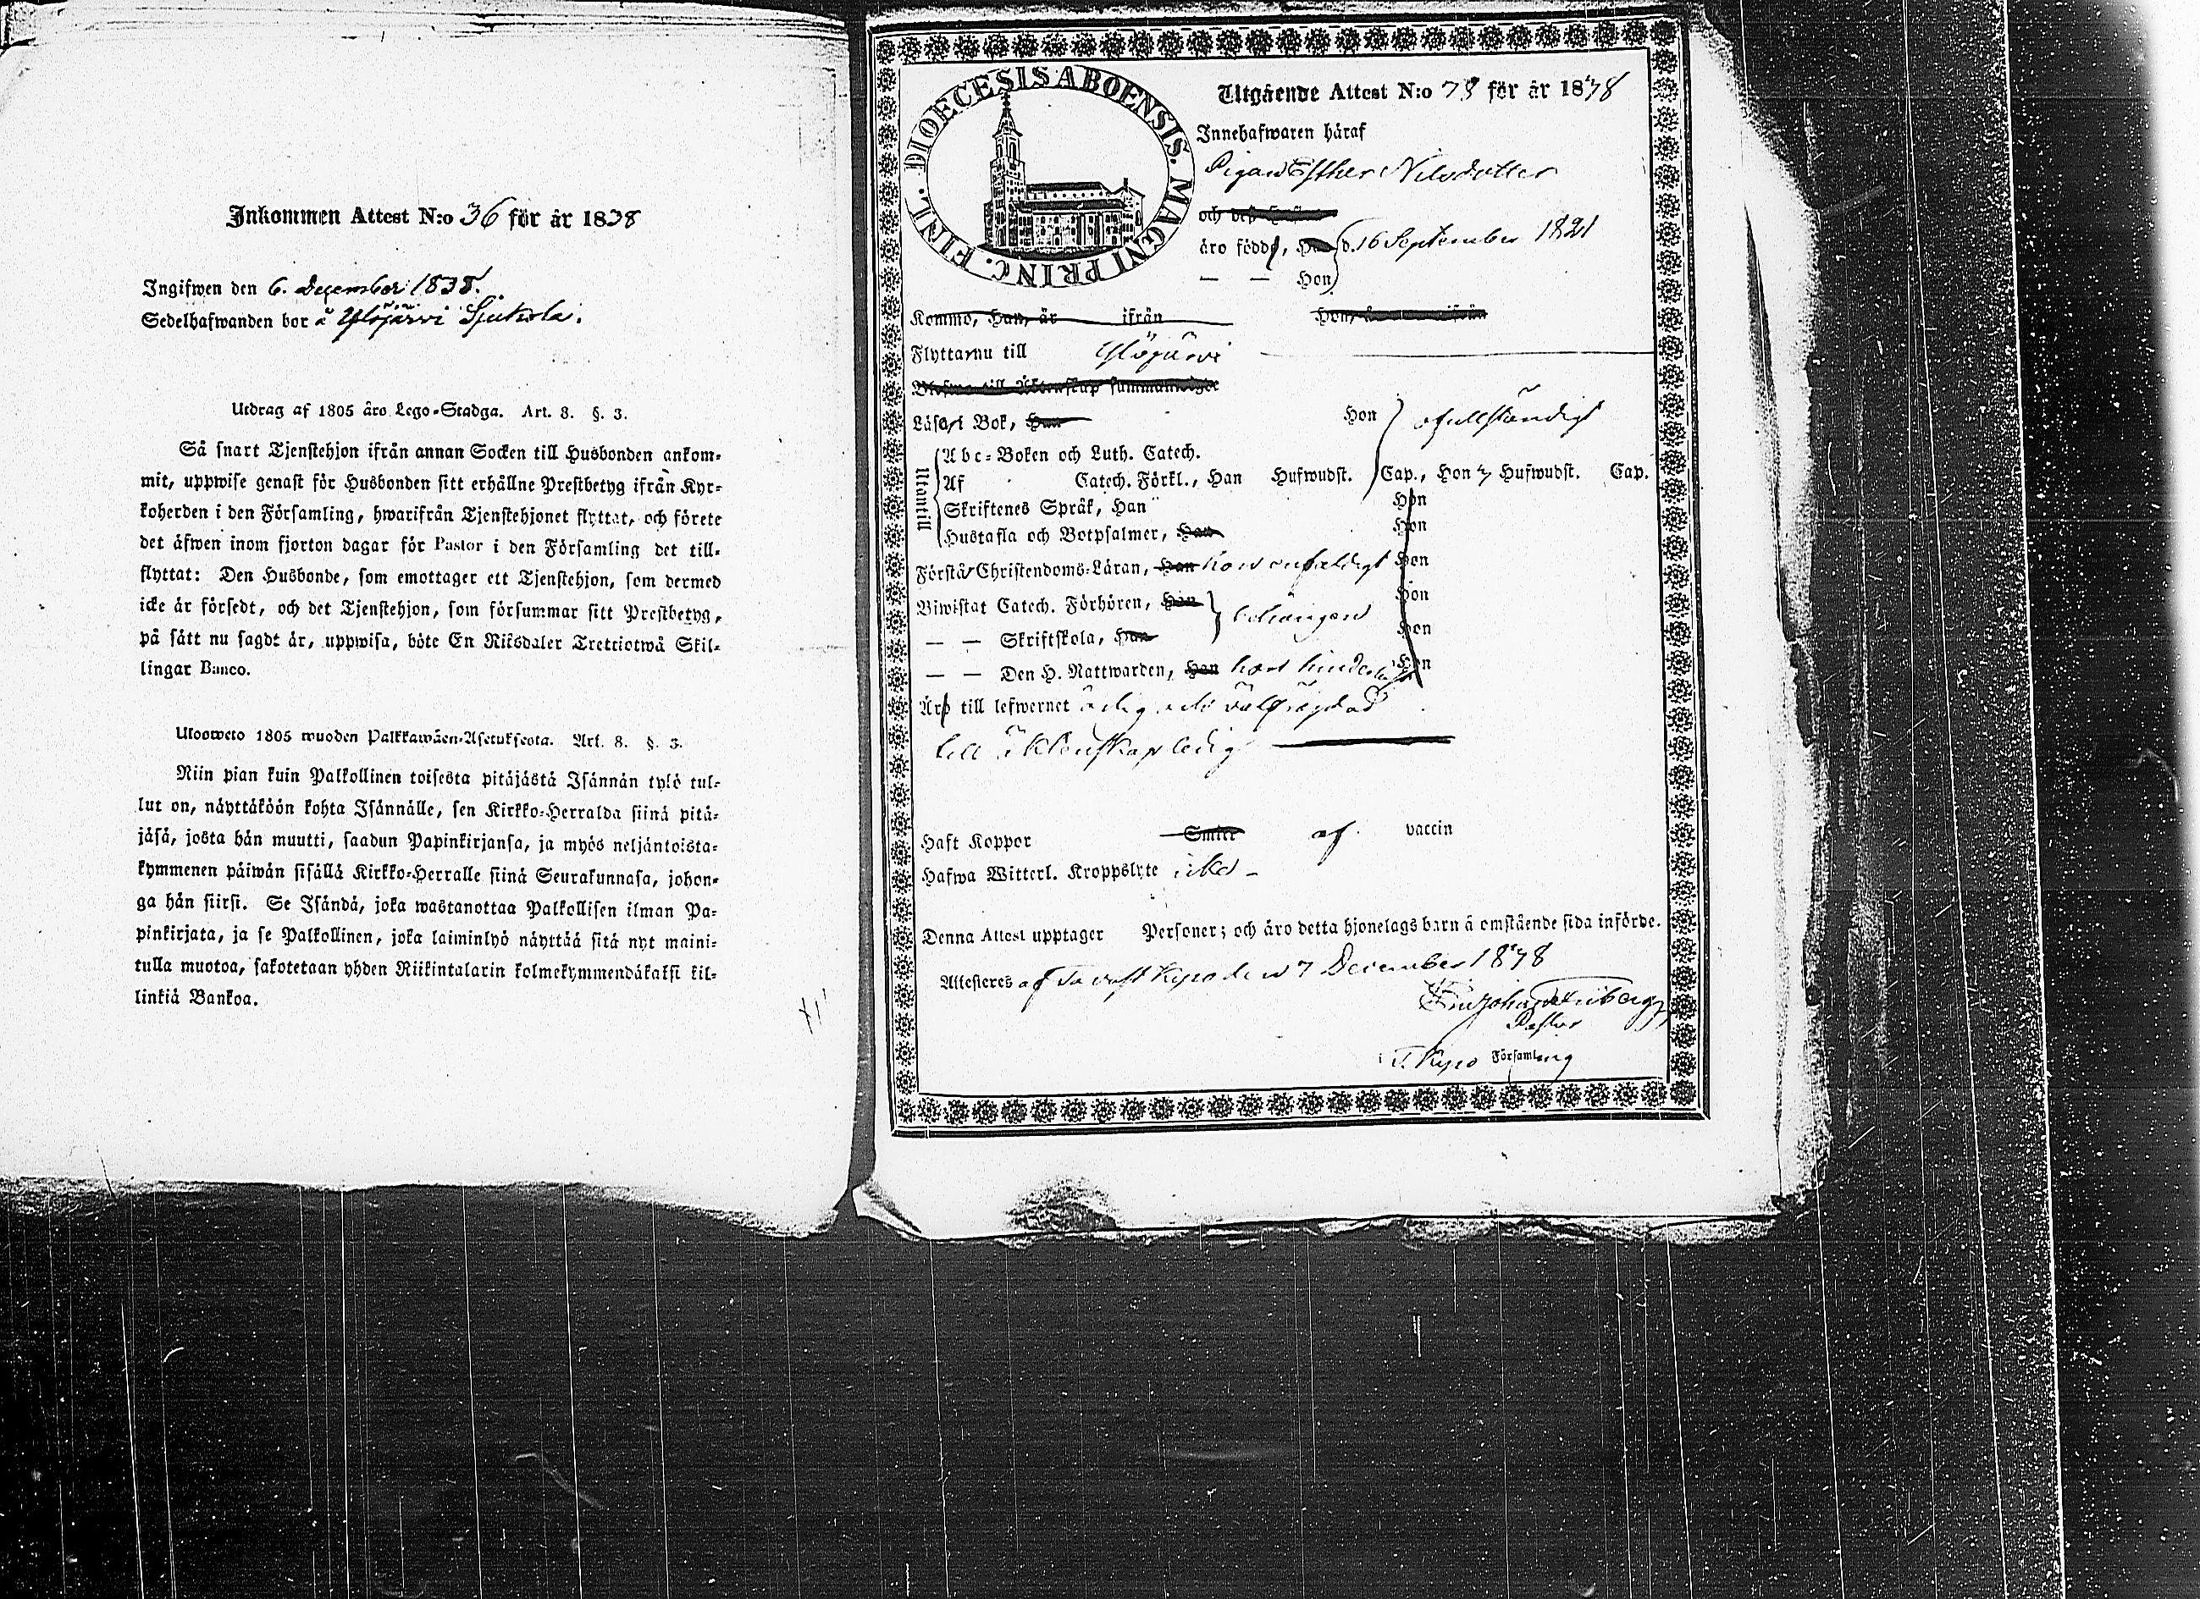 Inkommen Attest N:o 36 för år 1838
Ingifwen den 6. December 1838.
Sedelhafwanden bor å Ylöjärvi Sjukola.
Utdrag af 1805 års Lego-Stadga. Art. 8. §. 3.
Så snart Tjenstehjon ifrån annan Socken till Husbonden ankom-
mit, uppwise genast för Husbonden sitt erhållne Prestbetyg ifrån Kyr-
koherden i den Församling, hwarifrån Tjenstehjonet flyttat, och förete
det äfwen inom fjorton dagar för Pastor i den Församling det till-
flyttat: Den Husbonde, som emottager ett Tjenstehjon, som dermed
icke är försedt, och det Tjenstehjon, som försummar sitt Prestbetyg,
på sätt nu sagdt är, uppwisa, böte En Riksdaler Trettiotwå Skil-
lingar Banco.
Ulosweto 1805 wuoden Palkkawäen-Asetuksesta. Art. 8. §. 3.
Niin pian kuin Palkollinen toisesta pitäjästä Isännän tylö tul-
lut on, näyttäköön kohta Isännälle, sen Kirkko-Herralda siinä pitä-
jäsä, josta hän muutti, saadun Papinkirjansa, ja myös neljäntoista-
kymmenen päiwän sisällä Kirkko-Herralle siinä Seurakunnasa, johon-
ga hän siirsi. Se Isändä, joka wastanottaa Palkollisen ilman Pa-
pinkirjata, ja se Palkollinen, joka laiminlyö näyttää sitä nyt maini-
tulla muotoa, sakotetaan yhden Riikintalarin kolmekymmendäkaksi kil-
linkiä Bankoa.
DIOECESIS ABOENSIS. MAGNI PRINC. FINL.
Utgående Attest N:o 78 för år 1838
Innehafwaren häraf
Pigan Esther Nilsdotter
och deß
äro födde, Han d. 16 September 1821
— — Hon
Komme, Han, är ifrån Hon, är ifrån
Flyttarnu till Ylöjärvi
Läsa i Bok, Han Hon ofullständigt
Utantill
Abc-Boken och Luth. Catech.
Af Catech. Förkl., Han Hufwudst. Cap., Hon 7 Hufwudst. Cap.
Skriftenes Språk, Han Hon
Hustafla och Botpsalmer, Han Hon
Förstår Christendoms-Läran, Han Hon enfaldigt Hon
Biwistat Catech. Förhören, Han Hon
— — Skriftskola, Han Hon
— — Den H. Nattwarden, Han Hon
Äro till lefwernet ärlig och välfrägdad
till äktenskap ledig
Haft Koppor Smitt af vaccin
Hafwa Witterl. Kroppslyte icke
Denna Attest upptager Personer; och äro detta hjonelags barn å omstående sida införde.
Attesteras af Tavast Kyro den 7 December 1838
Pastor
i T. Kyro Församling